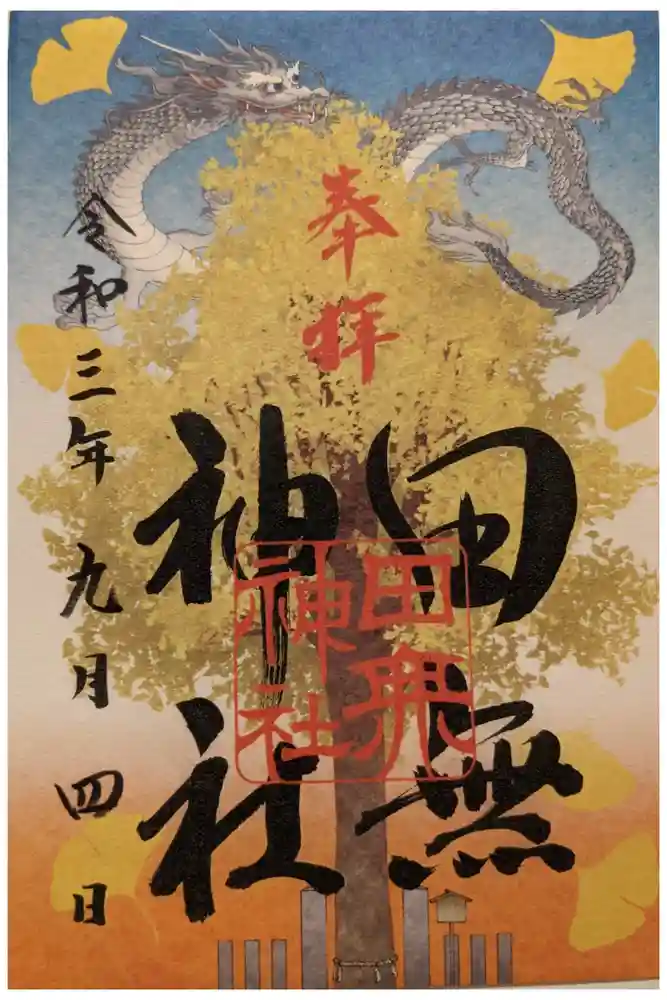 奉拝
田無
神社
田無
神社
令和三年九月四日